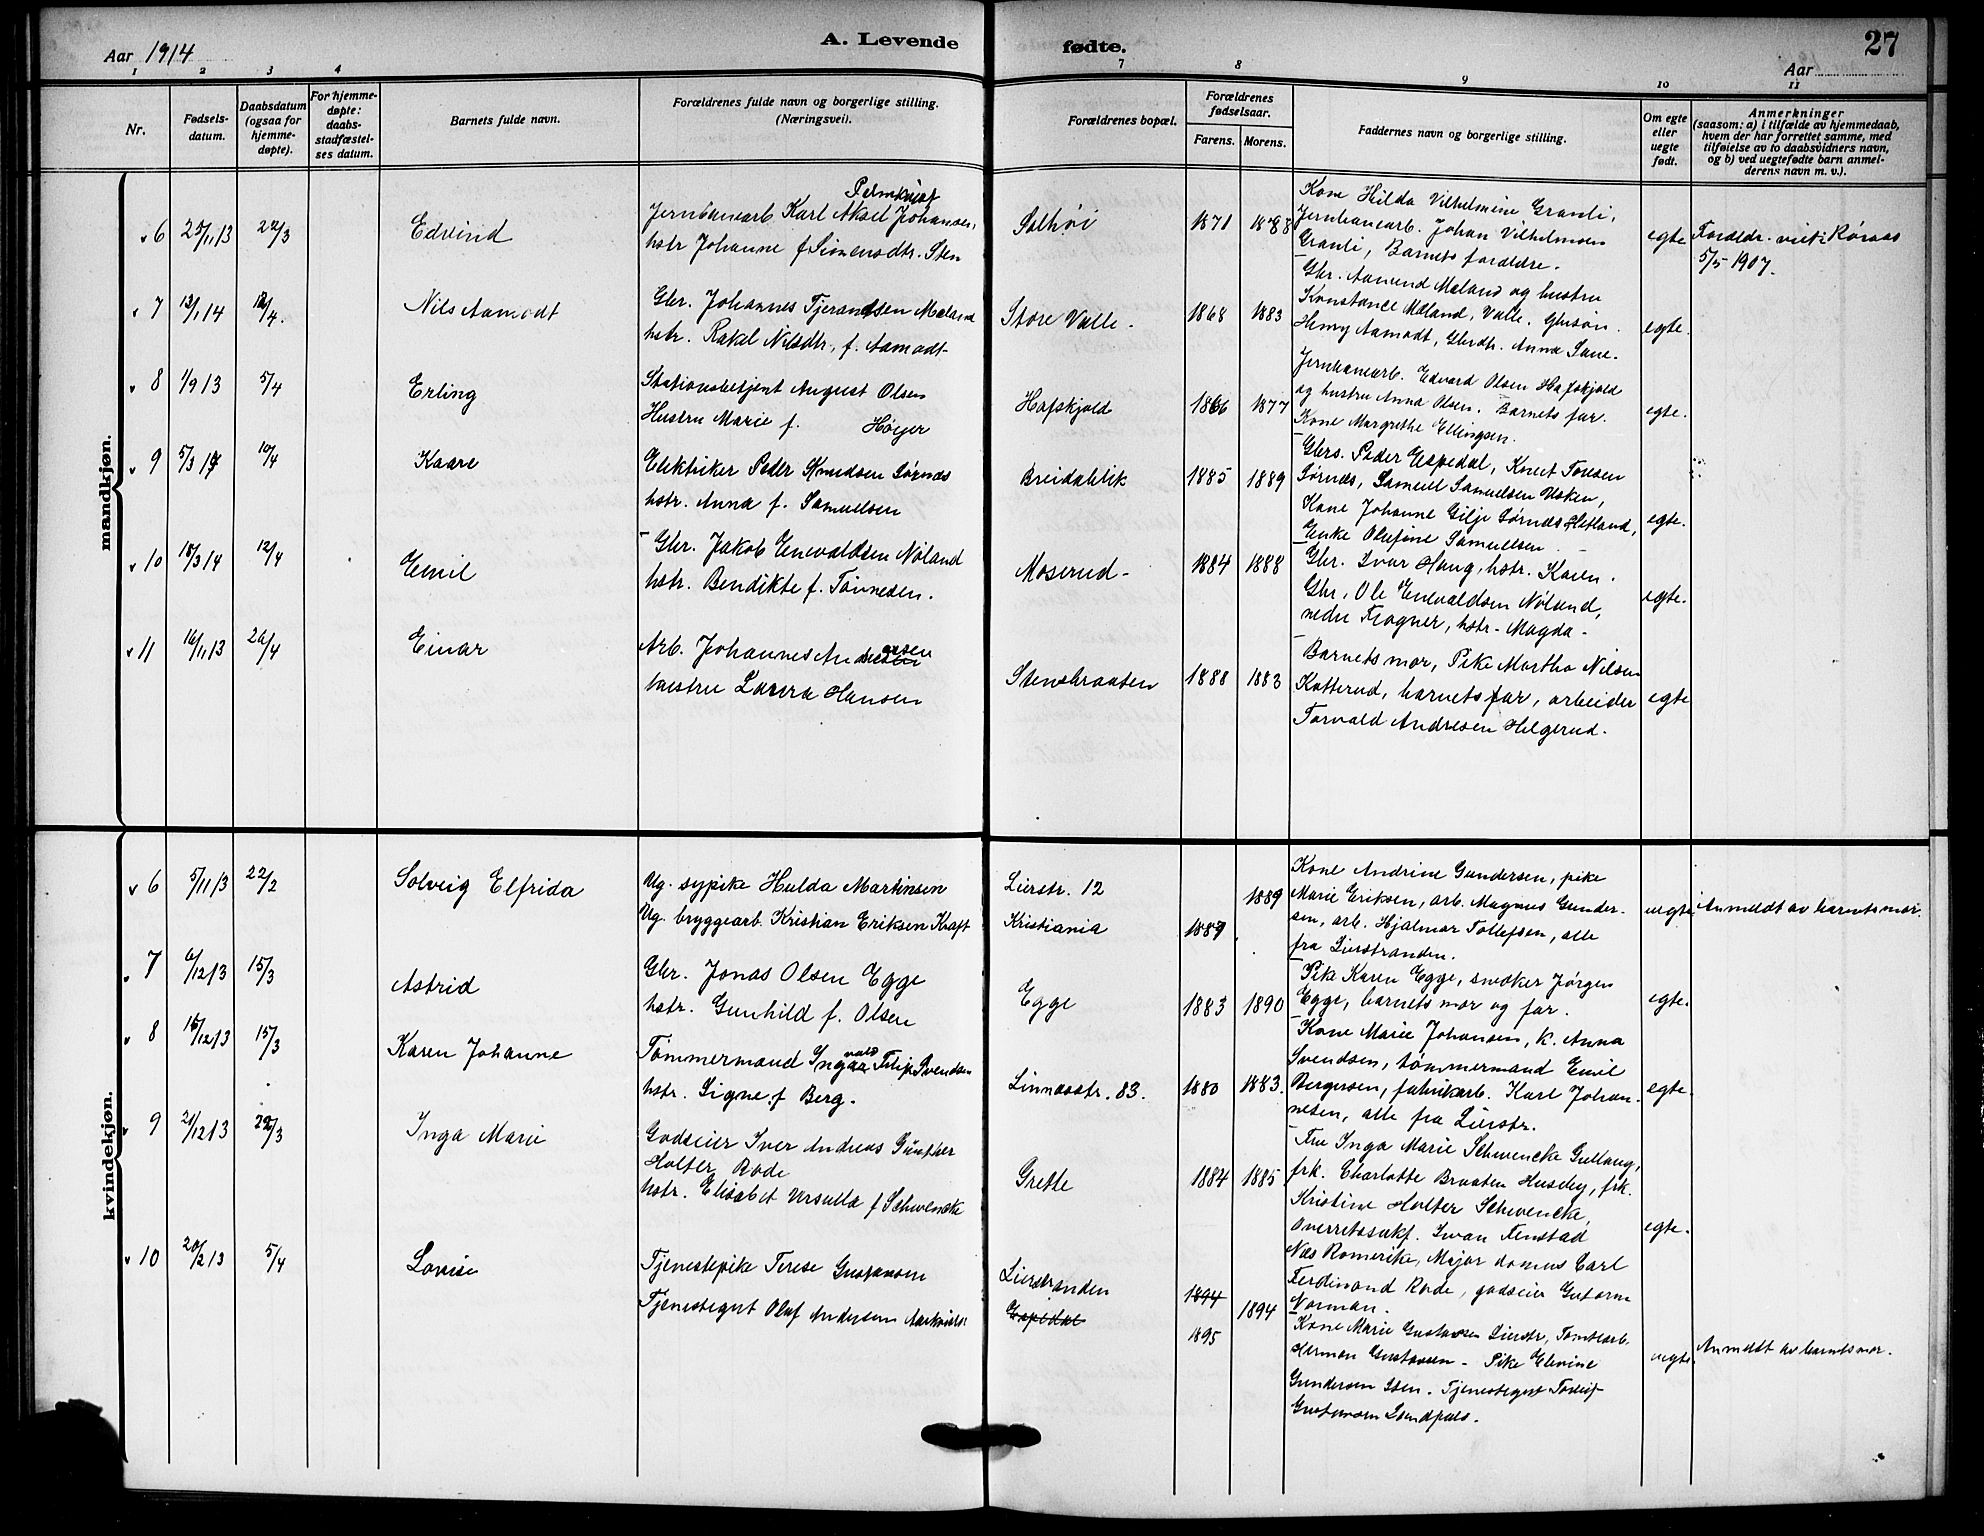 Aar 1914
A. Levende
fødte.
27
Aar
1 2 3 4 7 8 9 10 11
Nr.
Fødsels-
datum.
Daabsdatum
(ogsaa for
hjemme-
døpte).
For hjemme-
døpte:
daabs-
stadfæstel-
ses datum.
Barnets fulde navn.
Forældrenes fulde navn og borgerlige stilling.
(Næringsvei).
Forældrenes bopæl.
Forældrenes
fødselsaar.
Farens. Morens.
Faddernes navn og borgerlige stilling.
Om egte
eller
uegte
født.
Anmerkninger
(saasom: a) i tilfælde av hjemmedaab,
hvem der har forrettet samme, med
tilføielse av to daabsvidners navn,
og b) ved uegtefødte barn anmel-
derens navn m. v.).
mandkjøn.
6 25/11 13 22/3
Edvind
Jernbanearb Karl Aksel Johansen,
hstr Johanne f Simensdtr. Sten
Solhøi
1871 1888
Kone Hilda Vilhelmine Granli,
Jernbanearb. Johan Vilhelmsen
Granli, Barnets forældre.
egte
Forældr. viet i Røraas
5/5 1907.
7 13/1 14 12/4.
Nils Aamodt
Gbr. Johannes Tjerandsen Mæland
hstr. Rakel Nilsdtr, f. Aamodt
Store Valle.
1868 1883
Gbr. Aanund Mæland og hustru
Konstance Mæland, Valle. Gbrsøn.
Henry Aamodt, Gbrdtr. Anna
egte.
8 1/9 13 5/4
Erling
Stationsbetjent August Olsen
Hustru Marie f. Høyer
Hafskjold
1866 1877
Jernbanearb. Edvard Olsen Hafskjold
og hustru Anna Olsen. Barnets far.
Kone Margrethe Ellingsen.
egte.
9 5/3 14 10/4
Kaare
Elektriker Peder Knudsen Sørnæs
hstr. Anna f. Samuelsen
Breidablik
1885 1889
Gbrs. Peder Espedal, Knut Tonesen
Sørnæs, Samuel Samuelsen Usken,
Kone Johanne Gilje Sørnæs Hetland,
Enke Olufine Samuelsen.
egte.
10 18/3 14 12/4
Emil
Gbr. Jakob Enevaldsen Nøland
hstr. Bendikte f. Tønnesen.
Moserud
1884 1888
Gbr. Ivar Haug, hstr. Karen.
Gbr, Ole Enevaldsen Nøland,
nedre Frogner, hstr. Magda
egte.
11 16/11 13 26/4
Einar
Arb. Johannes Andresen
hustru Laura Hansen
Stensbraaten
1888 1883
Barnets mor, Pike Martha Nilsen
Katterud, barnets far, arbeider
Torvald Andresen Helgerud.
egte
kvindekjøn.
6 5/11 13 22/2
Solveig Elfrida
Ug. sypike Hulda Martinsen
Ug. bryggearb. Kristian Eriksen Kraft
Lierstr. 12
Kristiania
1889
1887
Kone Andrine Gundersen, pike
Marie Eriksen, arb. Magnus Gunder-
sen, arb. Hjalmar Tollefsen, alle
fra Lierstranden.
uegte
Anmeldt av barnets mor.
7 6/12 13 15/3
Astrid
Gbr. Jonas Olsen Egge
hstr. Gunhild f. Olsen
Egge
1883 1890
Pike Karen Egge, snedker Jørgen
Egge, barnets mor og far.
egte.
8 15/12 13 15/3
Karen Johanne
Tømmermand Ingvald Filip Svendsen
hstr. Signe f Berg.
Linnæsstr. 83.
1880 1883.
Kone Marie Johansen, k. Anna
Svendsen, tømmermand Emil
Bergersen, fabrikarb. Karl Johan-
nesen, alle fra Lierstr.
egte.
9 21/12 13 22/3
Inga Marie
Godseier Iver Andreas Günther
Holter Rode
hstr. Elisabet Ursulla f Schwencke
Grette
1884 1885
Fru Inga Marie Schwencke Gullaug,
frk. Charlotte Braaten Huseby, frk.
Kristine Holter Schwencke,
Overretssakf. Ivan Fenstad
Næs Romerike, Major domus Carl
Ferdinand Rode, godseier Gutorm
Norman.
egte.
10 20/2 13 5/4
Lovise
Tjenestepike Terese Gustavsen
Tjenestegut Oluf Andersen
Lierstranden
Espedal
1894
1895
1894
Kone Marie Gustavsen Lierstr, Tomtearb.
Herman Gustavsen - Pike Elevine
Gundersen Sten. Tjenestegut Toralf
Gustavsen
uegte
Anmeldt av barnets mor.